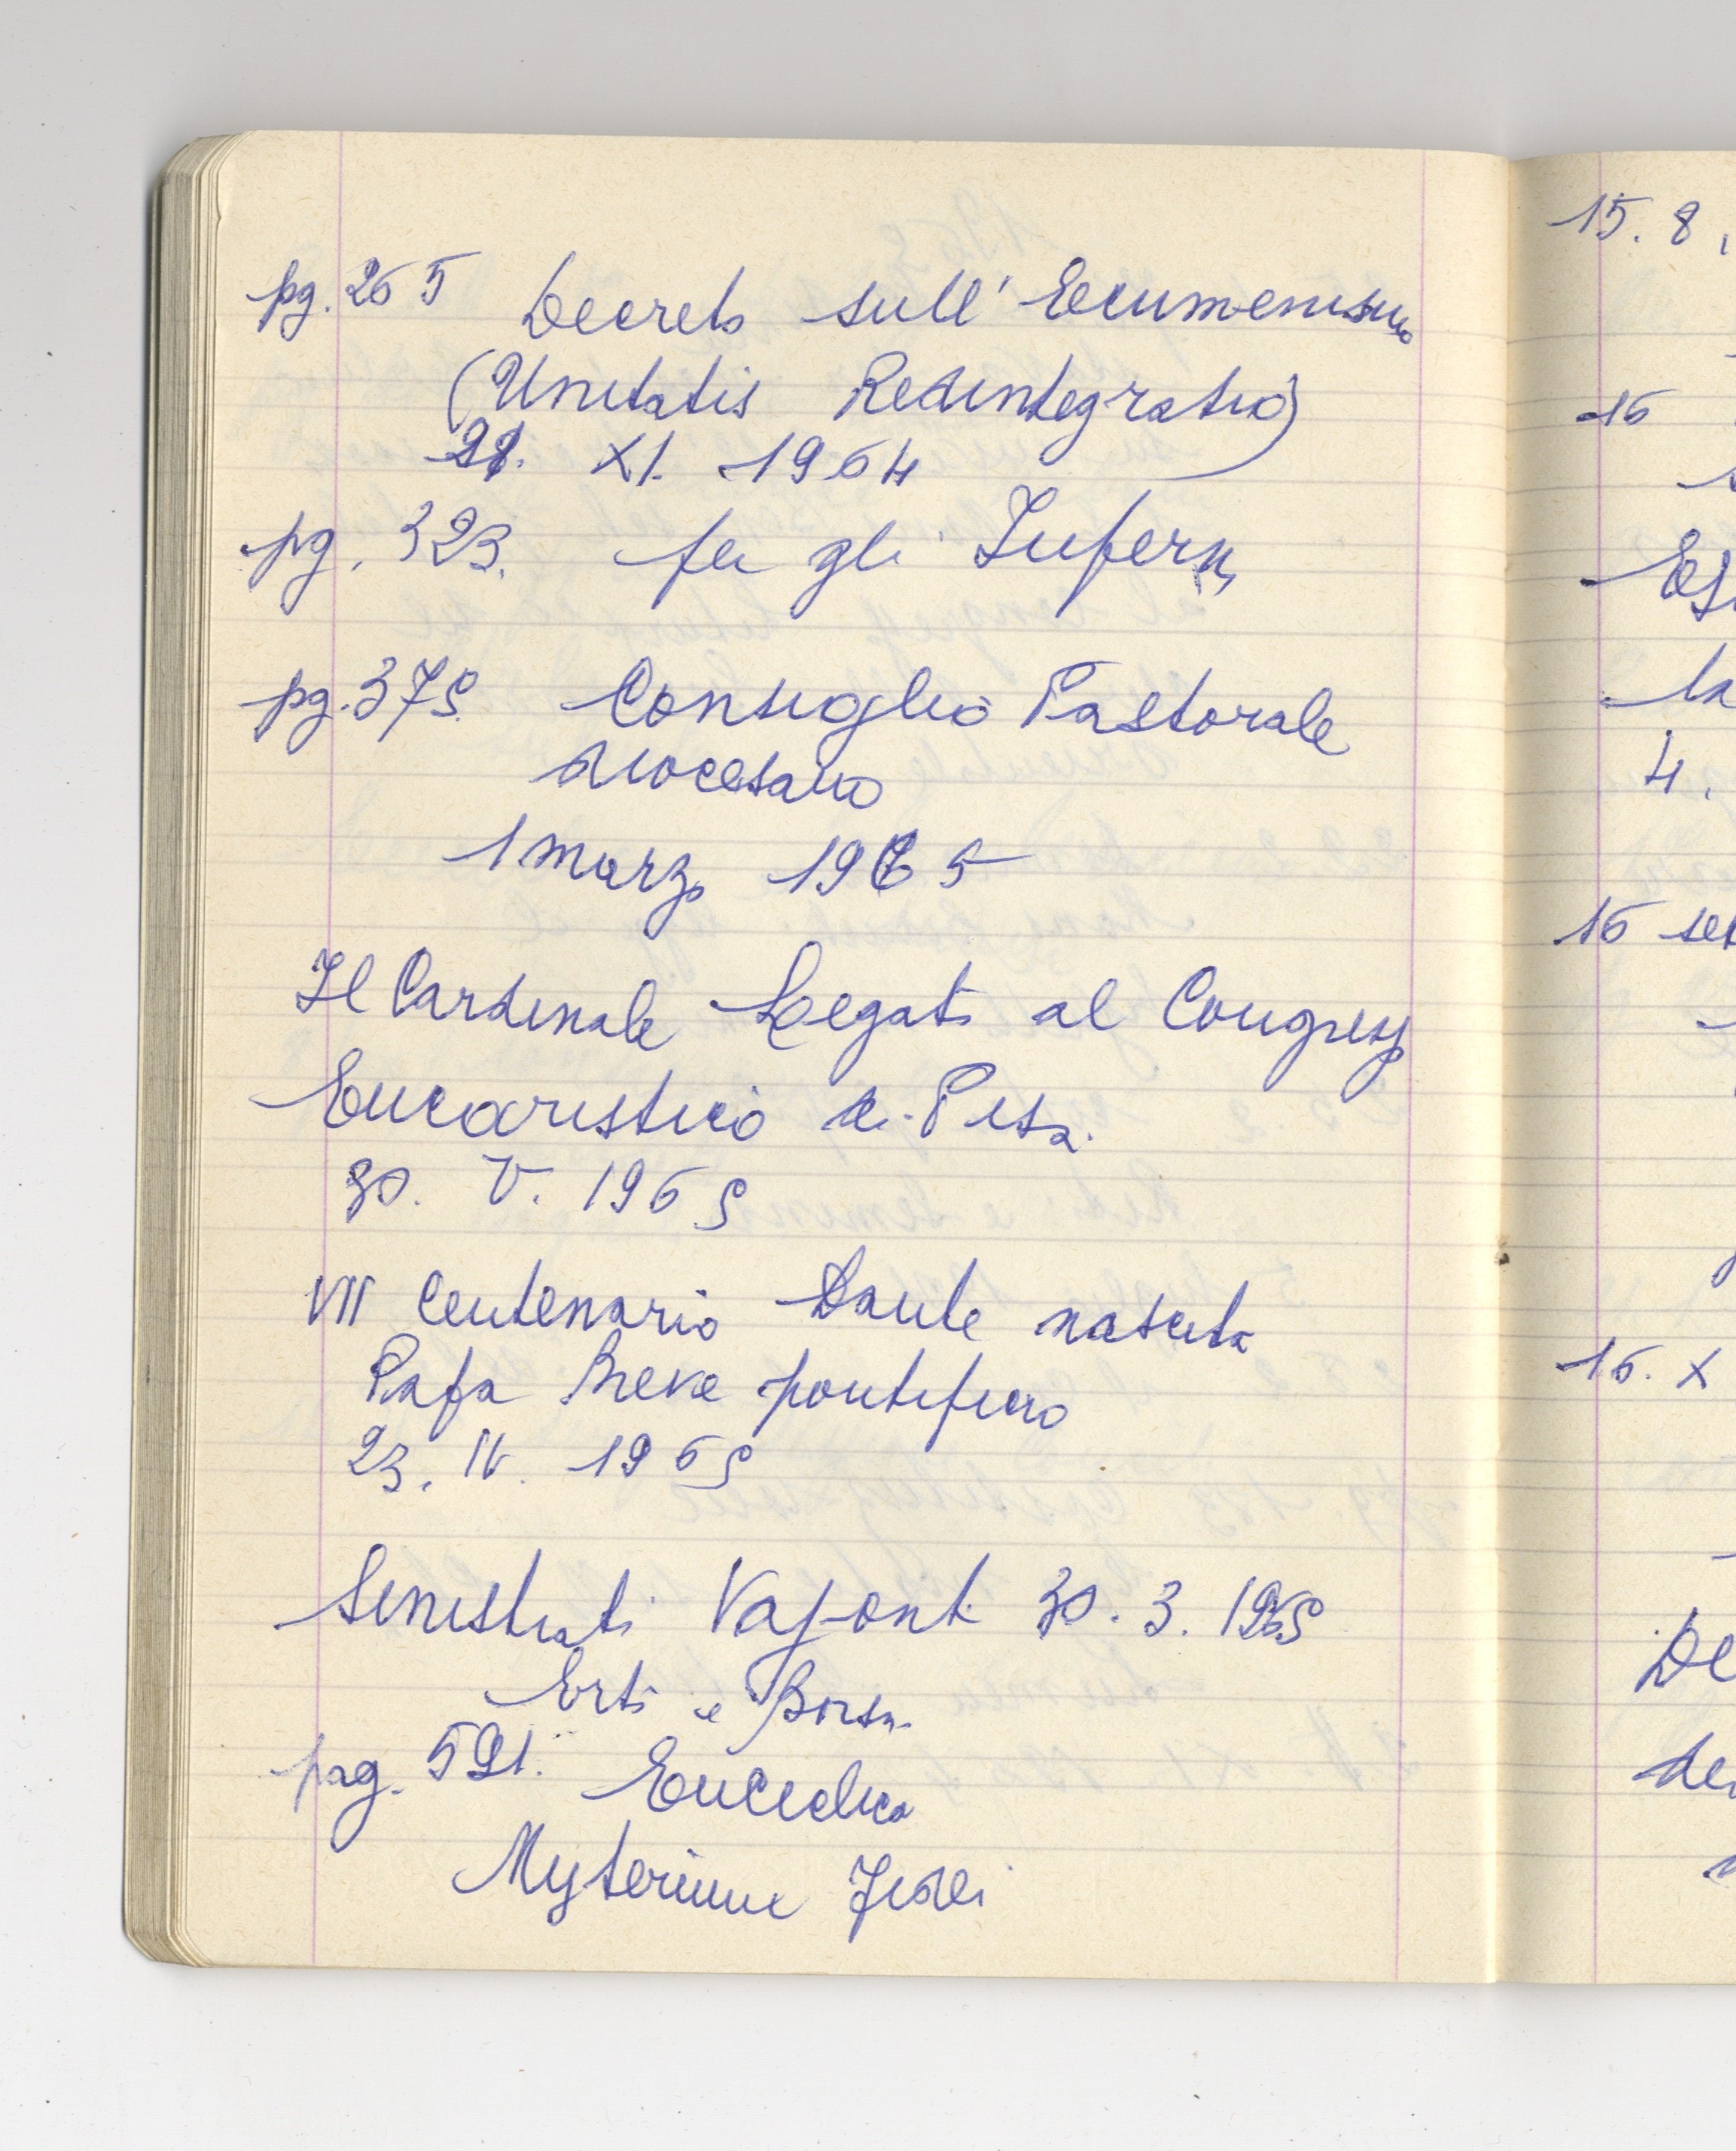 pg. 265 Decreto sull' Ecumenismo
(Unitatis Redintegratio)
21. XI. 1964
pg. 323. per gli Infermi
pg. 375 Consiglio Pastorale
diocesano
1 marzo 1965
Il Cardinale Legato al Congresso
Eucaristico di Pisa.
30. V. 1965
VII Centenario Dante nascita
Papa Breve pontificio
23. IV. 1965
Sinistrati Vajont 30. 3. 1965
Erto e
pag. 521. Enciclica
Mysterium Fidei
15. 8.
16
4.
16
16. X